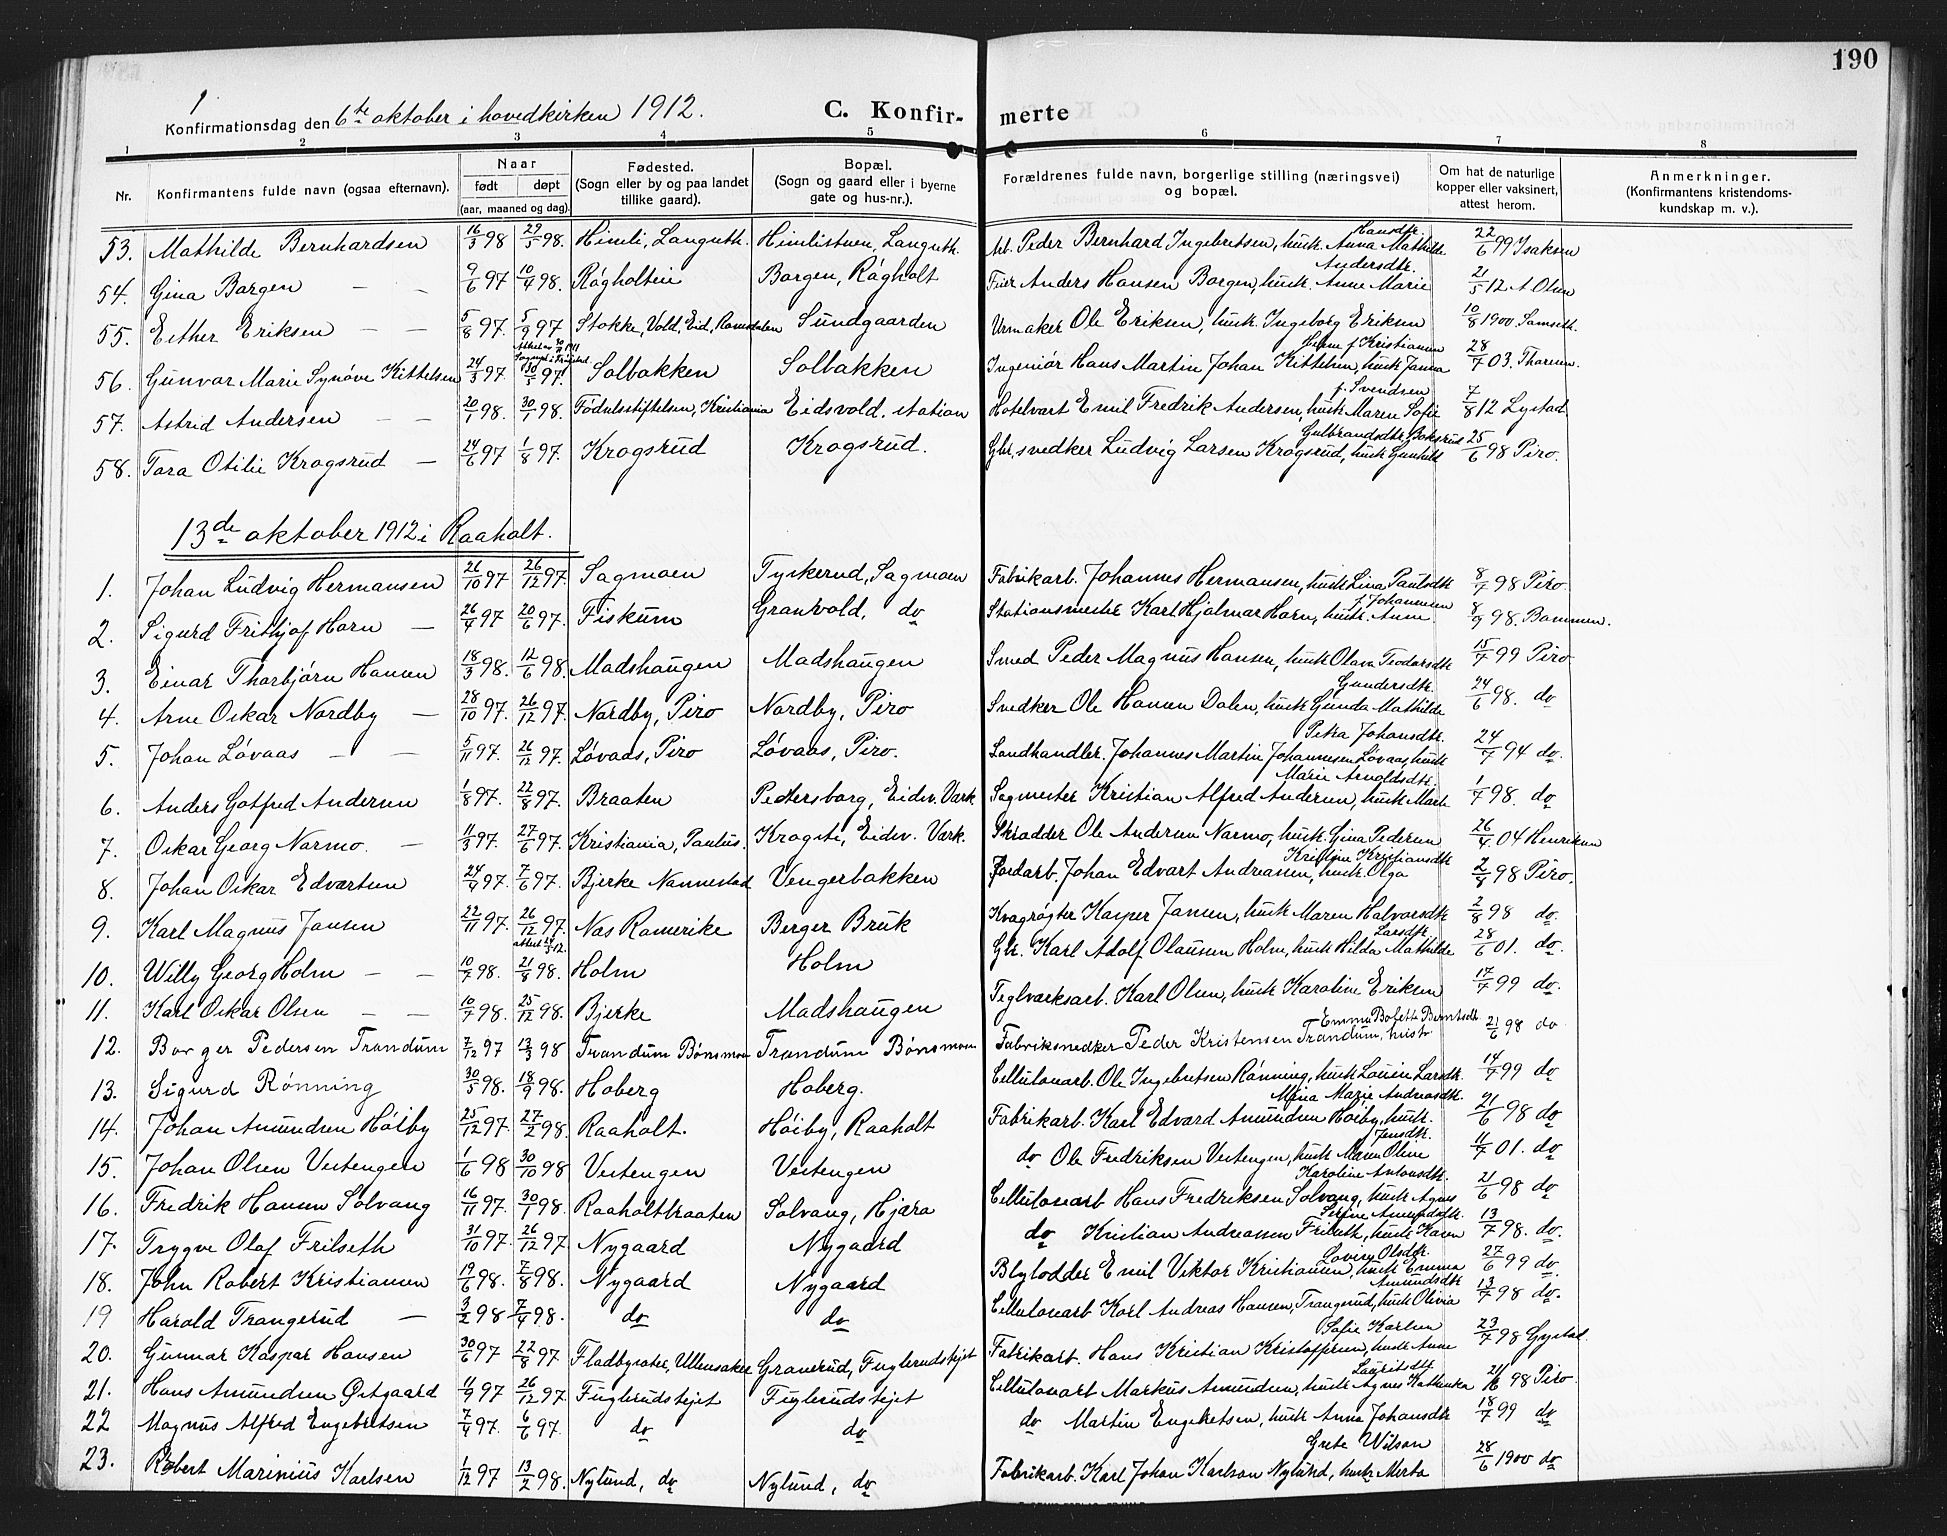 190
1
Konfirmationsdag den 6te oktober i hovedkirken 1912. C. Konfir- merte
1 2 3 4 5 6 7 8
Nr. Konfirmantens fulde navn (ogsaa efternavn). Naar født døpt (aar, maaned og dag). Fødested. (Sogn eller by og paa landet tillike gaard). Bopæl. (Sogn og gaard eller i byerne gate og hus-nr.). Forældrenes fulde navn, borgerlige stilling (næringsvei) og bopæl. Om hat de naturlige kopper eller vaksinert, attest herom. Anmerkninger. (Konfirmantens kristendoms-kundskap m. v.).
53. Mathilde Bernhardsen 16/3 98 29/5 98. Himli, Languth. Himlistuen, Languth. Arb. Peder Bernhard Ingebretsen, hustr. Anna Mathilde Hansdtr. 22/6 99 Isaksen
54. Gina Borgen — — 9/6 97 10/4 98. Rågholteie Borgen, Rågholt Feier Anders Hansen Borgen, hustr. Anne Marie Andersdtr. 21/5 12 A Olsen
55. Esther Eriksen — — 5/8 97 5/9 97 Stokke, Vold, Eid, Romsdalen Sundgaarden Urmaker Ole Eriksen, hustr. Ingeborg Eriksen 10/8 1900 Samseth.
56. Gunvor Marie Synøve Kittelsen 24/3 97. 30/5 97. Solbakken Solbakken Ingeniør Hans Martin Johan Kittelsen, hustr. Janna f. Kristiansen 28/7 03. Thoresen.
57. Astrid Andersen — 20/1 98. 30/1 98. Fødselsstiftelsen, Kristiania Eidsvold station Hotelvært Emil Fredrik Andersen, hustr. Maren Sofie f. Svendsen 7/8 12 Lystad
58. Tora Otilie Krogsrud — 24/6 97 1/8 97. Krogsrud Krogsrud. Gbr., snedker Ludvig Larsen Krogsrud, hustr. Gunhild Gulbrandsdtr. Boksrud 25/6 98 Piro.
13de oktober 1912 i Raaholt.
1. Johan Ludvig Hermansen 26/10 97 26/12 97. Sagmoen Tyskerud, Sagmoen Fabrikarb. Johannes Hermansen, hustr. Lina Paulsdtr. 8/7 98 Piro
2. Sigurd Frithjof Horn — 26/4 97 20/6 97. Fiskum Granvold, do Stationsmester Karl Hjalmar Horn, hustr. Anne f. Johannesen 8/9 98. Bommen.
3. Einar Thorbjørn Hansen 18/3 98. 12/6 98. Madshaugen Madshaugen Smed Peder Magnus Hansen, hustr. Olava Teodorsdtr. 15/7 99 Piro
4. Arne Oskar Nordby — 28/10 97. 26/12 97. Nordby, Piro Nordby, Piro Snedker Ole Hansen Dalen, hustr. Gunda Mathilde Gundersdtr. 24/6 98. do
5. Johan Løvaas — — 5/11 97. 26/12 97. Løvaas, Piro Løvaas, Piro. Landhandler. Johannes Martin Johannesen Løvaas, hustr. Petra Johansdtr. 24/7 94 do.
6. Anders Gotfred Andersen 1/8 97. 22/8 97. Braaten Pedersborg, Eidsv. Værk Sagmester Kristian Alfred Andersen, hustr. Marte Marie Arnoldsdtr. 1/7 98. do
7. Oskar Georg Narmo. — 11/3 97. 27/6 97. Kristiania, Paulus. Krogste, Eidsv. Værk. Skrædder Ole Andersen Narmo, hustr. Gina Pedersen 26/4 04 Henriksen
8. Johan Oskar Edvartsen 24/4 97. 7/6 97. Bjerke Nannestad Vengerbakken Jordarb. Johan Edvart Andreassen, hustr. Olga Kristine Kristiansdtr. 2/8 98 Piro.
9. Karl Magnus Jansen 22/11 97. 26/12 97. Nes Romerike Berger Bruk Kvægrøgter Kasper Jansen, hustr. Maren Halvorsdtr. 2/8 98 do.
10. Willy Georg Holm — — 10/7 98. 21/8 98. Holm Holm Gbr. Karl Adolf Olausen Holm, hustr. Hilda Mathilde Larsdtr. 28/6 01. do.
11. Karl Oskar Olsen — — 10/7 98. 25/12 98. Bjerke Madshaugen Teglverksarb. Karl Olsen, hustr. Karoline Eriksen 17/7 99 do.
12. Borger Pedersen Trandum 7/12 97 13/3 98 Trandum Bønsmoen Trandum Bønsmoen Fabriksnedker Peder Kristensen Trandum, hustr. Emma Bolette Berntsdtr. 21/6 98 do
13. Sigurd Rønning 30/5 98. 18/9 98. Hoberg Hoberg. Cellulosearb. Ole Ingebretsen Rønning, hustr. Lovise Larsdtr. 14/7 99 do
14. Johan Amundsen Høiby 25/12 97. 27/2 98. Raaholt. Høiby, Raaholt Fabrikarb. Karl Edvard Amundsen Høiby, hustr. Mina Marie Andreasdtr. 21/6 98 do
15. Johan Olsen Vestengen 1/6 98 30/10 98 Vestengen Vestengen do Ole Fredriksen Vestengen, hustr. Maren Oline Jensdtr. 11/7 01. do
16. Fredrik Hansen Solvang 16/11 97. 30/1 98. Raaholtbraaten Solvang, Hjæra Cellulosearb Hans Fredriksen Solvang, hustr. Agnes Karoline Antonsdtr. 21/6 98 do
17. Trygve Olaf Frilseth 31/10 97. 26/12 97. Nygaard Nygaard do Kristian Andreassen Frilseth, hustr. Karen Serine Amundsdtr. 13/7 98. do.
18. John Robert Kristiansen 19/6 98. 7/8 98. Nygaard Nygaard Blylodder Emil Viktor Kristiansen, hustr. Emma Lovise Olsdtr. 27/6 99 do.
19 Harald Trangerud — 3/2 98 7/4 98. do do Cellulosearb Karl Andreas Hansen, Trangerud, hustr. Olivia Amundsdtr. 13/7 98 do.
20. Gunnar Kaspar Hansen 30/6 97 22/8 97 Fladbyseter, Ullensaker Granerud, Fuglerudstejet Fabrikarb. Hans Kristian Kristoffersen, hustr. Anne Sofie Karlsen 23/7 98 Gystad
21. Hans Amundsen Østgaard 11/9 97 26/12 97. Fuglerudstejet Fuglerudstejet Cellulosearb Markus Amundsen, hustr. Agnes Kathinka Lauritsdtr. 21/6 98 Piro
22 Magnus Alfred Engebretsen 7/4 97. 6/6 97. do do do Martin Engebretsen, hustr. Anna Johansdtr. 18/7 99 do
23. Robert Marinius Karlsen 1/12 97 13/2 98. Nylund, do Nylund, do Fabrikarb. Karl Johan Karlson Nylund, hustr. Merta Grete Wilson 28/6 1900 do